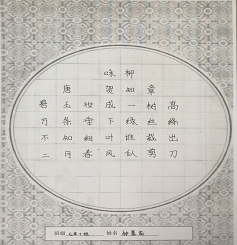 咏柳
唐 贺知章
碧玉妆成一树高
万条垂下绿丝绦
不知细叶谁裁出
二月春风似剪刀
班级 姓名